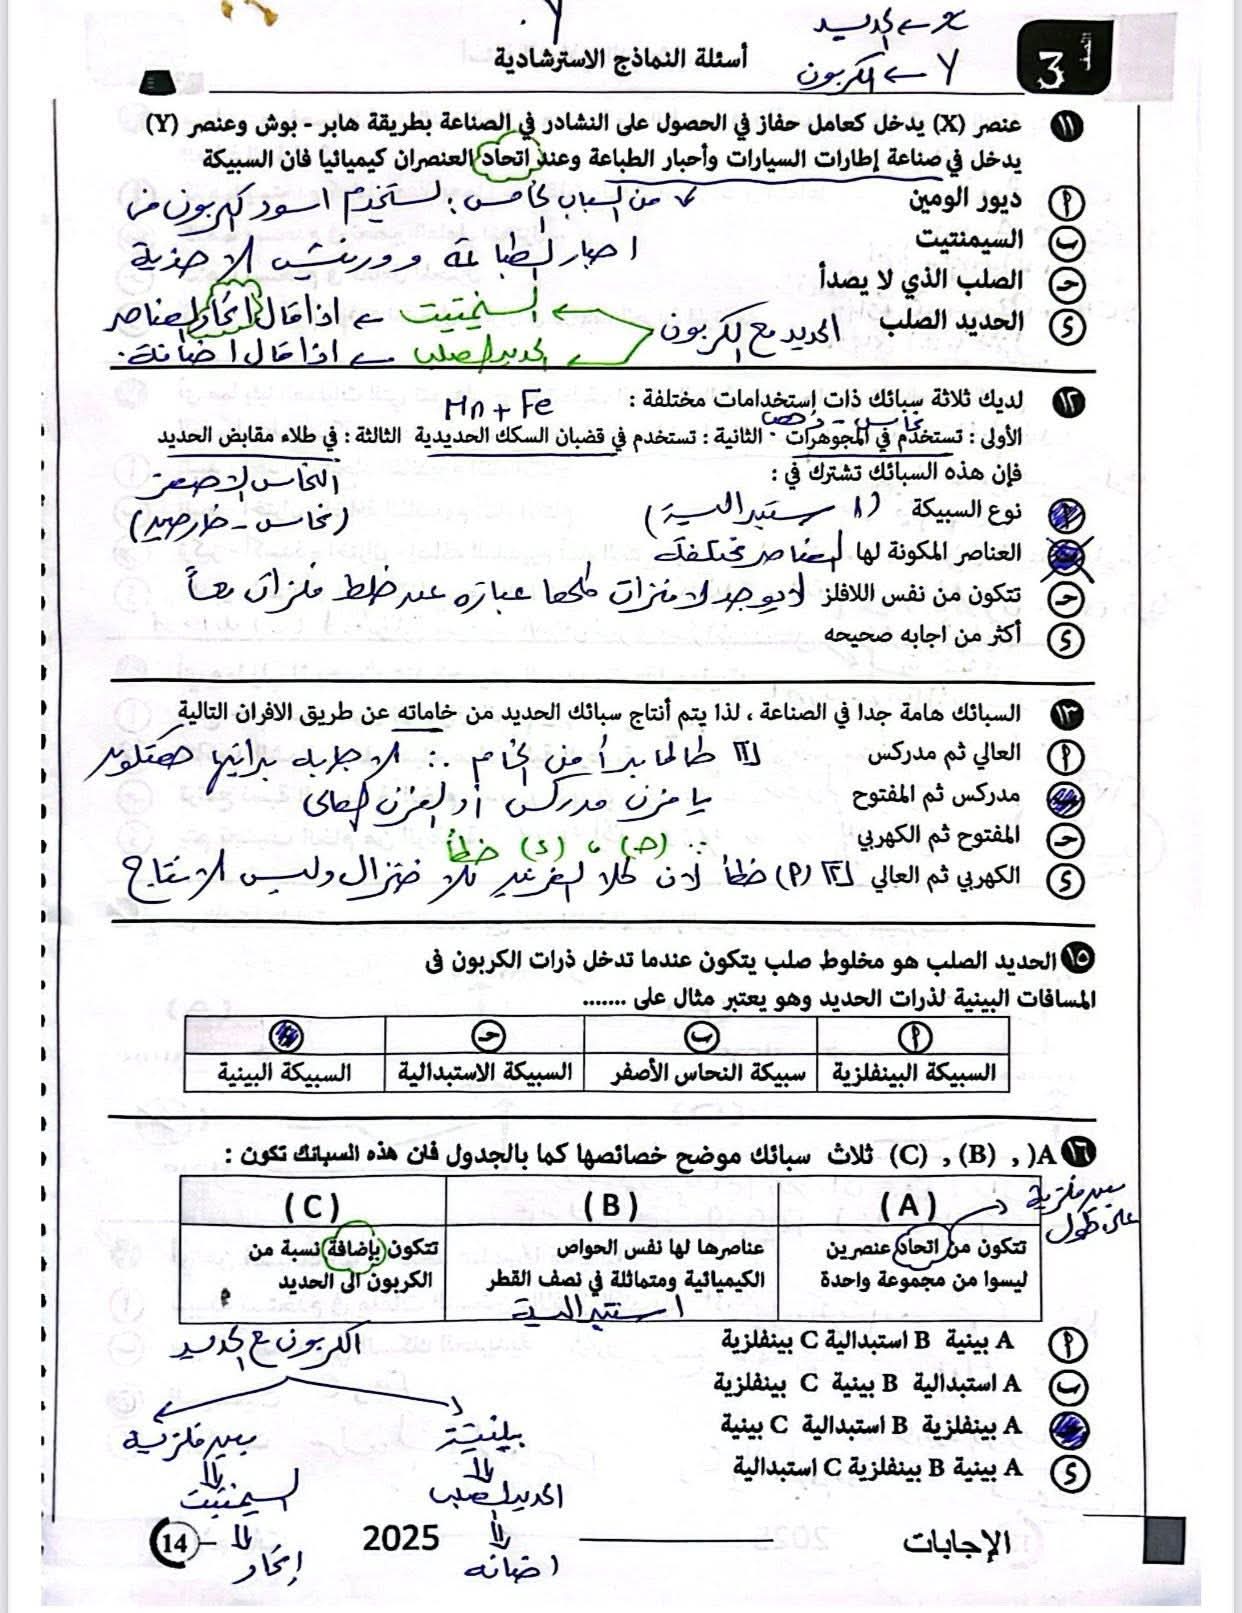 x ← الحديد
أسئلة النماذج الاسترشادية
y ← الكربون
الصف 3
١١ عنصر (X) يدخل كعامل حفاز في الحصول على النشادر في الصناعة بطريقة هابر - بوش وعنصر (Y)
يدخل في صناعة إطارات السيارات وأحبار الطباعة وعند اتحاد العنصران كيميائيا فان السبيكة
أ ديور الومين
من الباب الخامس: نستخدم اسود كربون من
ب السيمنتيت
احبار الطباعة وورنيش الاحذية
ج الصلب الذي لا يصدأ
السيمنتيت ← اذا قال اتحاد العناصر
د الحديد الصلب
الحديد مع الكربون
الحديد الصلب ← اذا قال اضافة.
١٢ لديك ثلاثة سبائك ذات إستخدامات مختلفة :
Mn + Fe
نحاس - ذهب
الأولى : تستخدم في المجوهرات . الثانية : تستخدم في قضبان السكك الحديدية الثالثة : في طلاء مقابض الحديد
فإن هذه السبائك تشترك في :
النحاس الاصفر
أ نوع السبيكة (استبدالية)
(نحاس - خارصين)
ب العناصر المكونة لها العناصر مختلفة
ج تتكون من نفس اللافلز لا يوجد لا فلزات كلها عبارة عن خلط فلزات معاً
د أكثر من اجابه صحيحه
١٣ السبائك هامة جدا في الصناعة ، لذا يتم أنتاج سبائك الحديد من خاماته عن طريق الافران التالية
أ العالي ثم مدركس
1 طالما بدأ من الخام ∴ الاجابة بدايتها هتكون
ب مدركس ثم المفتوح
يا فرن مدركس او الفرن العالى
ج المفتوح ثم الكهربي
∴ (ج) ، (د) خطأ
د الكهربي ثم العالي
2 (أ) خطأ لان كلا الفرنين للاختزال وليس الانتاج
١٥ الحديد الصلب هو مخلوط صلب يتكون عندما تدخل ذرات الكربون فى
المسافات البينية لذرات الحديد وهو يعتبر مثال على .......
أ ب ج د
السبيكة البينفلزية سبيكة النحاس الأصفر السبيكة الاستبدالية السبيكة البينية
١٦ A(, (B) , (C) ثلاث سبائك موضح خصائصها كما بالجدول فان هذه السبائك تكون :
(A) (B) (C)
بين فلزية
على طول
تتكون من اتحاد عنصرين
ليسوا من مجموعة واحدة
عناصرها لها نفس الحواص
الكيميائية ومتماثلة في نصف القطر
استبدالية
تتكون بإضافة نسبة من
الكربون الى الحديد
أ A بينية B استبدالية C بينفلزية
ب A استبدالية B بينية C بينفلزية
ج A بينفلزية B استبدالية C بينية
د A بينية B بينفلزية C استبدالية
الكربون مع الحديد
بينية
بين فلزية
الحديد الصلب
السيمنتيت
اضافة
إتحاد
الإجابات
2025
14